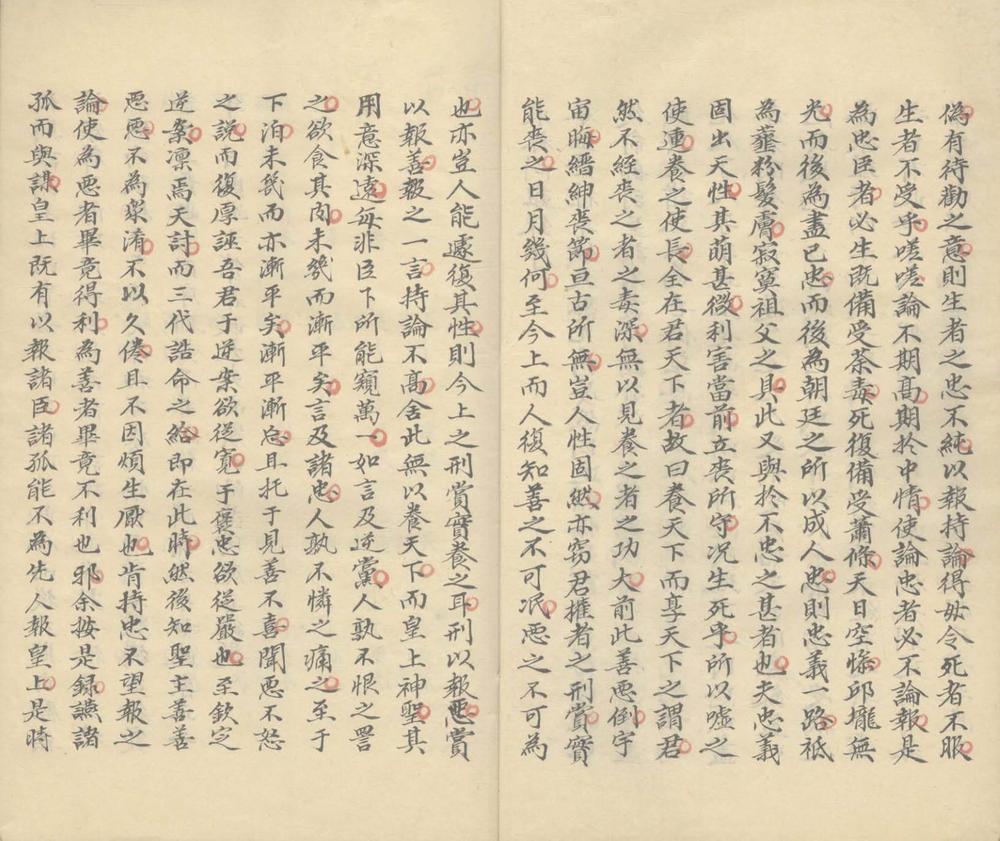 偽有待勸之意則生者之忠不純以報持論得毋令死者不服
生者不受乎嗟嗟論不期高期於中情使論忠者必不論報是
為忠臣者必生既備受荼毒死復備受蕭條天日空慘邱壠無
光而後為盡已忠而後為朝廷之所以成人忠則忠義一路祗
為虀粉髮膚寂寞祖父之具此又與於不忠之甚者也夫忠義
固出天性其萌甚微利害當前立喪所守况生死乎所以噓之
使連養之使長全在君天下者故曰養天下而享天下之謂君
然不經喪之者之毒深無以見養之者之功大前此善惡倒宇
宙晦縉紳喪節亘古所無豈人性固然亦窃君權者之刑賞實
能喪之日月幾何至今上而人復知善之不可泯惡之不可為
也亦豈人能遽復其性則今上之刑賞實養之耳刑以報惡賞
以報善報之一言持論不高舍此無以養天下而皇上神聖其
用意深遠每非臣下所能窺萬一如言及逆黨人孰不恨之詈
之欲食其肉未幾而漸平矣言及諸忠人孰不憐之痛之至于
下泊未幾而亦漸平矣漸平漸忘且托于見善不喜聞惡不怒
之說而復厚誣吾君于逆案欲從寬于褒忠欲從嚴也至欽定
逆案凛焉天討而三代誥命之給即在此時然後知聖主善善
惡惡不為眾淆不以久倦且不因煩生厭也肯持忠不望報之
論使為惡者畢竟得利為善者畢竟不利也邪余按是録讌諸
孤而與謀皇上既有以報諸臣諸孤能不為先人報皇上是時